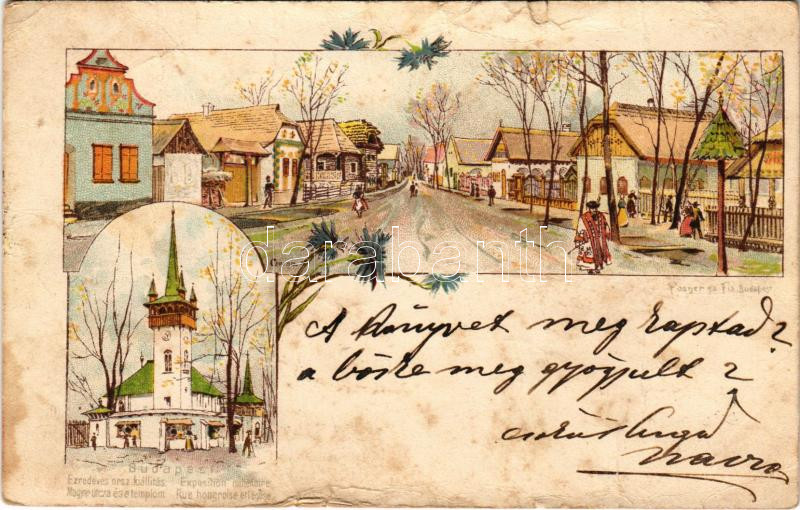 Posner és Fia, Budapest
darabanth
A könyvet meg kaptad?
a böske meg gyógyult?
Budapest
Ezredéves orsz. kiállítás. Exposition millénaire.
Magyar utcza és a templom. Rue hongroise et l'église.